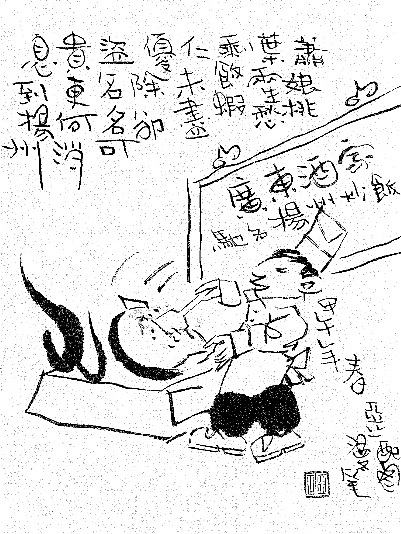 蕭娘桃
葉兩生愁
飯蝦
仁未盡
優除卻
盜名名可
貴更何消
息到揚州
廣東酒家
馳名揚州炒飯
甲午年春
亞配圖
漫筆